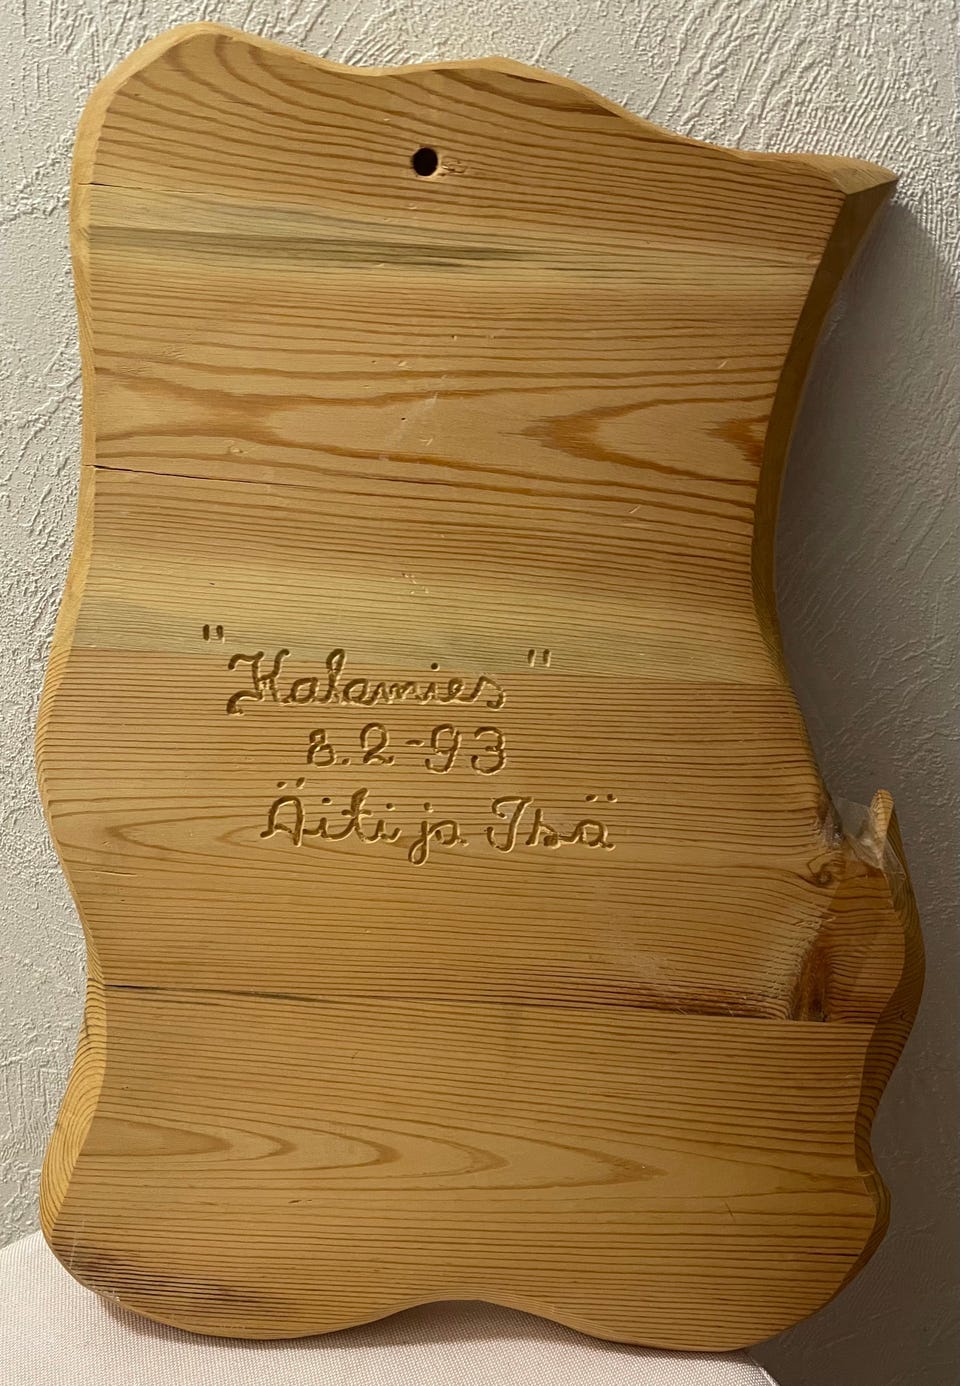 "Kalamies"
8.2-93
Äiti ja Isä